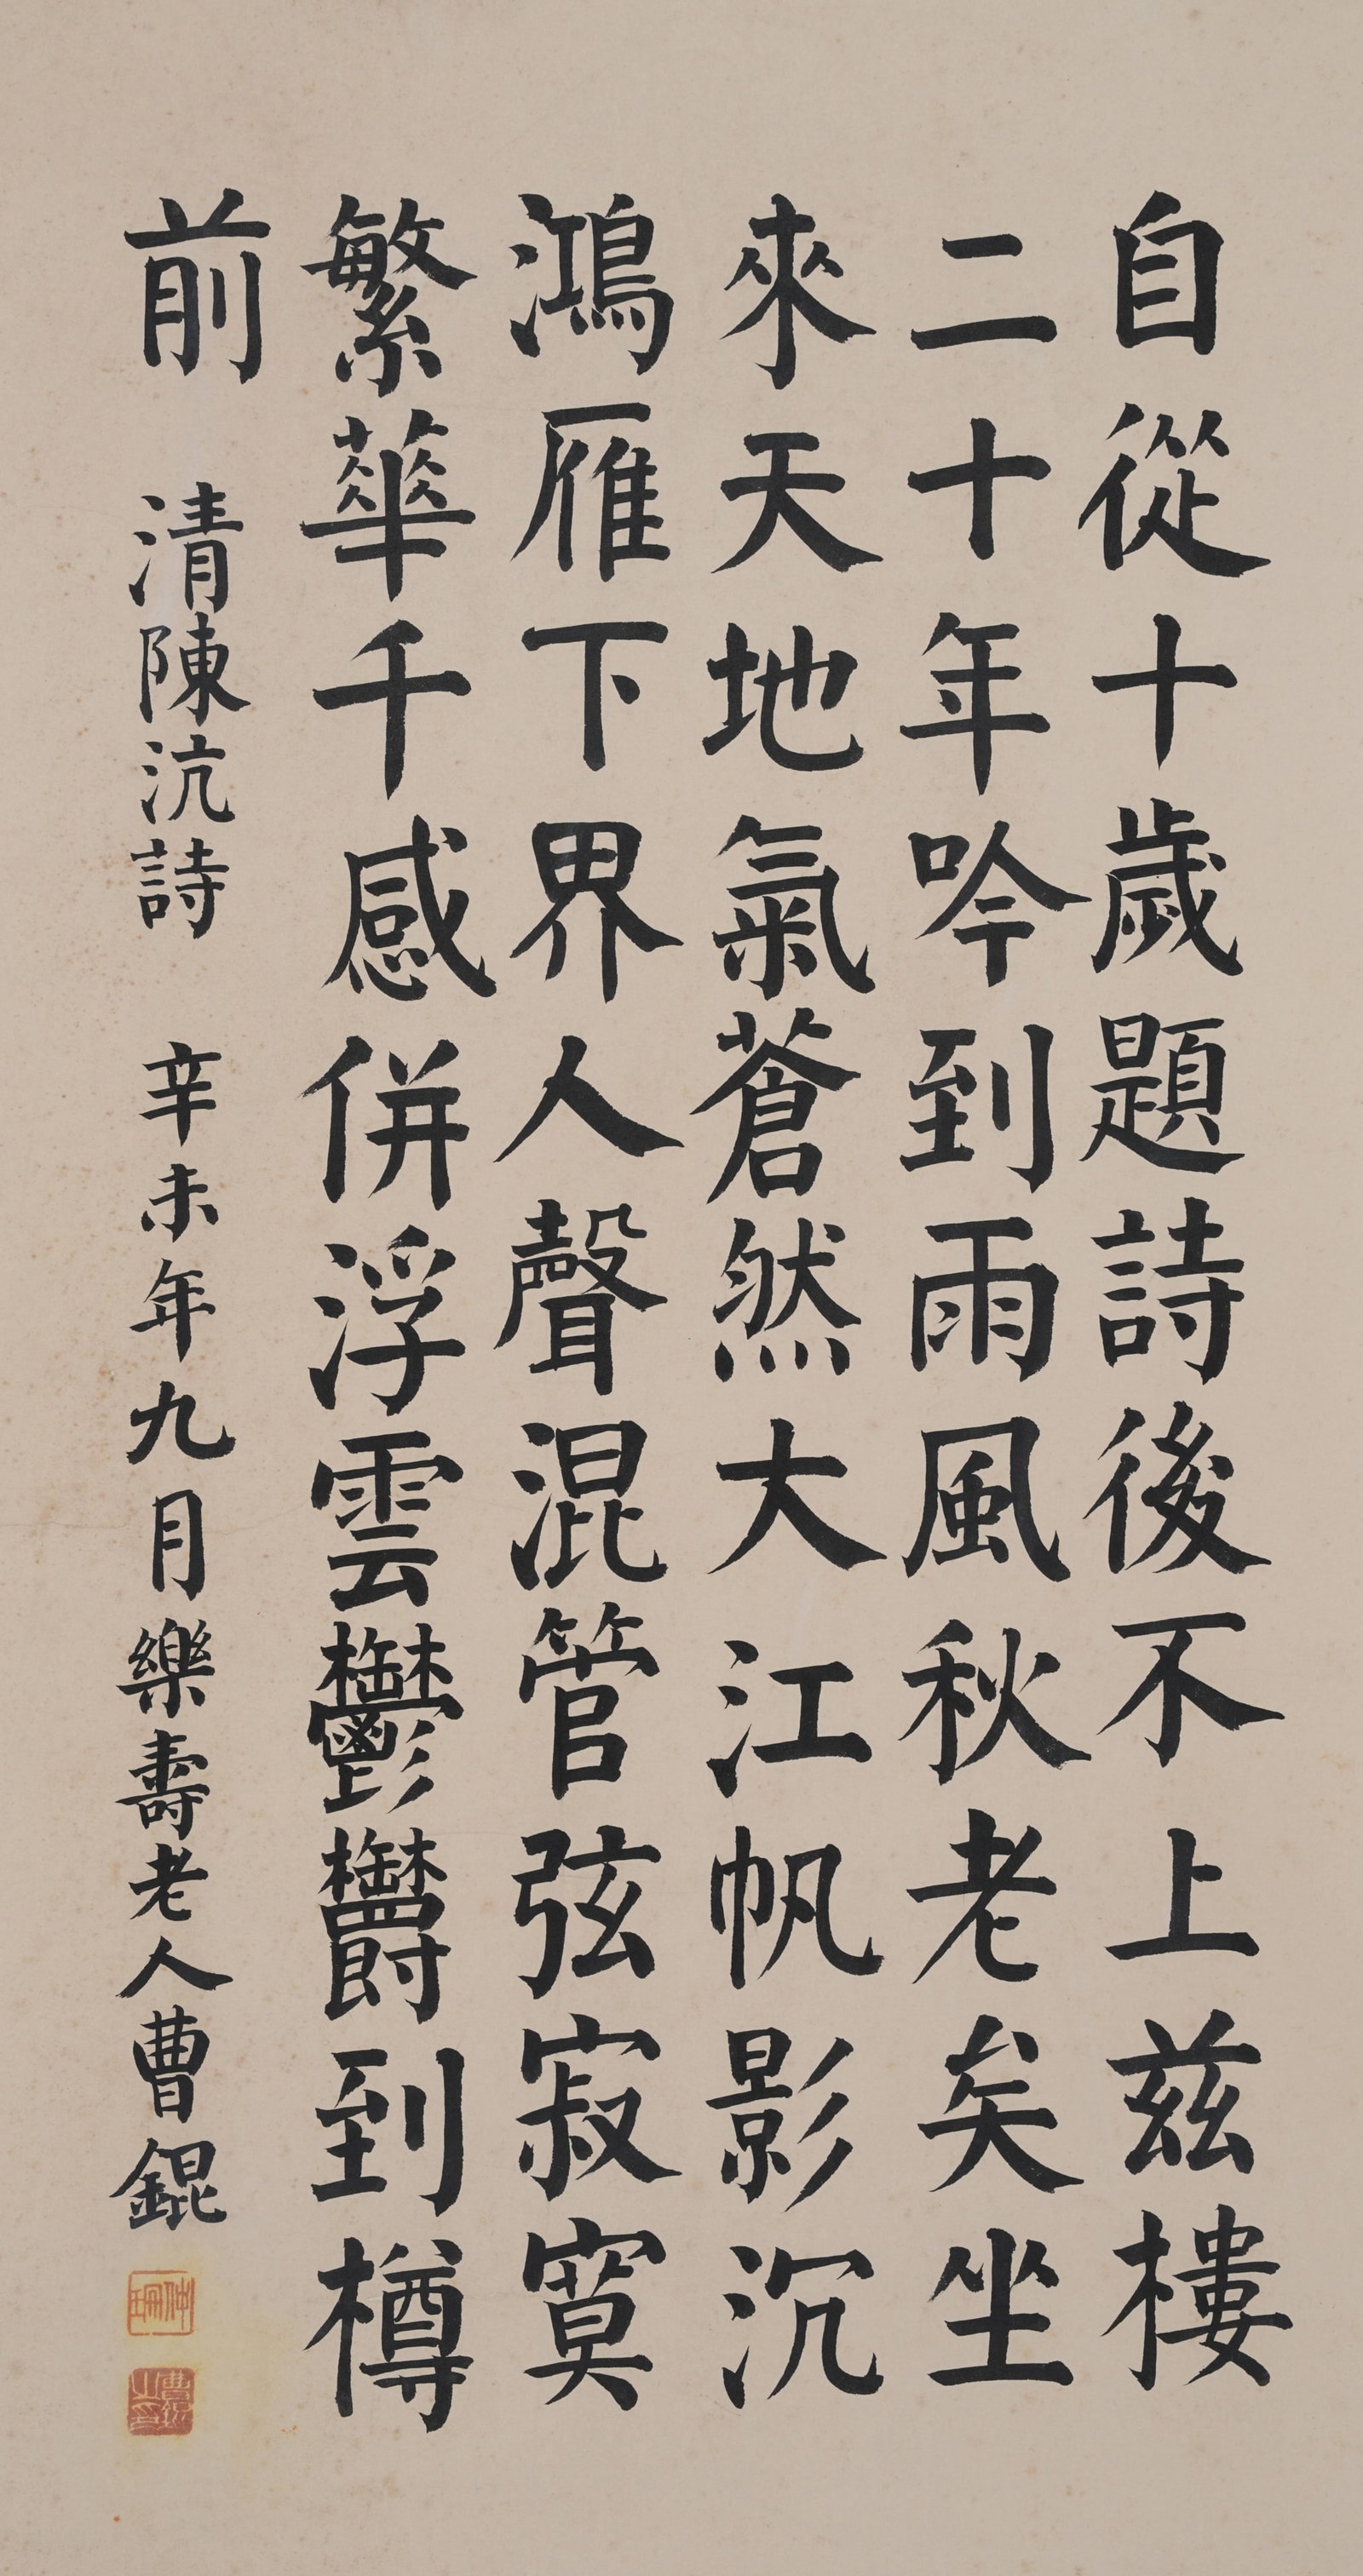 自從十歲題詩後不上茲樓
二十年吟到雨風秋老矣坐
來天地氣蒼然大江帆影沉
鴻雁下界人聲混管弦寂寞
繁華千感併浮雲鬱鬱到樽
前
清陳沆詩
辛未年九月樂壽老人曹錕
仲珊
曹錕之印